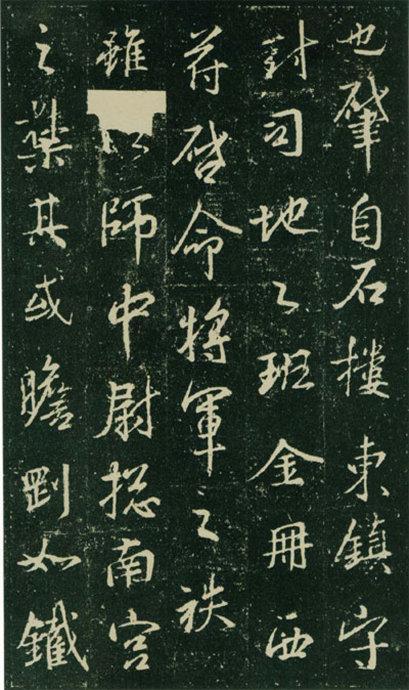 也肇自石樓東鎮守
封司地之班金冊西
苻啓命將軍之袟
雖以師中尉揔南宮
之其或瞻剛如鐵